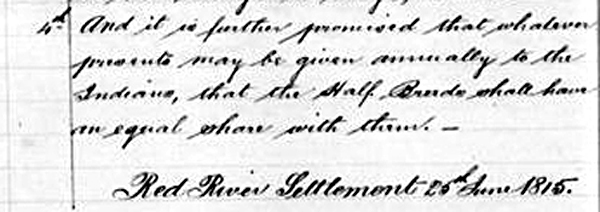 4th And it is further promised that whatever
presents may be given annually to the
Indians, that the Half Breeds shall have
an equal share with them. —
Red River Settlement 25th June 1815.